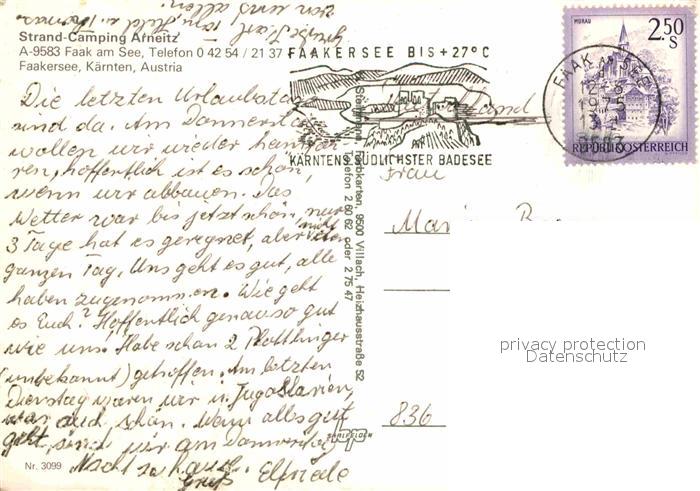 von uns allen
Strand-Camping Arneitz
A-9583 Faak am See, Telefon 0 42 54 / 21 37
Faakersee, Kärnten, Austria
Die letzten Urlaubstage
sind da. Am Donnerstag
wollen wir wieder heimfah-
ren, hoffentlich ist es schön,
wenn wir abbauen. Das
Wetter war bis jetzt schön, nur
3 Tage hat es geregnet, aber nicht den
ganzen Tag. Uns geht es gut, alle
haben zugenommen. Wie geht
es Euch? Hoffentlich genauso gut
wie uns. Habe schon 2 Plattlinger
(unbekannt) getroffen. Am letzten
Dienstag waren wir in Jugoslavien,
war auch schön. Wenn alles gut
geht, sind wir am Donnerstag
Nacht zuhause.
Gruß Elfriede
Nr. 3099
FAAKERSEE BIS +27°C
KÄRNTENS SÜDLICHSTER BADESEE
9500 Villach, Heizhausstraße 52
Telefon 2 60 62 oder 2 75 47
SAALFELDEN
MURAU
2.50
S
REPUBLIK ÖSTERREICH
FAAK AM SEE
Frau
836
privacy protection
Datenschutz